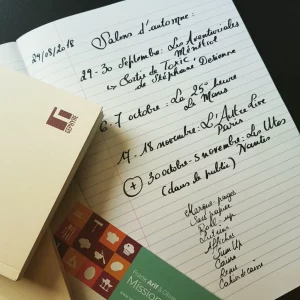 24/08/2018
Salons d'automne :
29-30 Septembre : Les Aventuriales
Ménétrol
↳ Sortie de Toxic,
de Stéphane Desienne
6-7 octobre : La 25e heure
Le Mans
17-18 novembre : L'Autre Livre
Paris
+ 30 octobre - 5 novembre : Les Utos
(dans le public) Nantes
Marque-pages
Sacs papier
Roll-up
Lutrins
Affiches
Sum Up
Caisse
Cahier de caisse
Missio